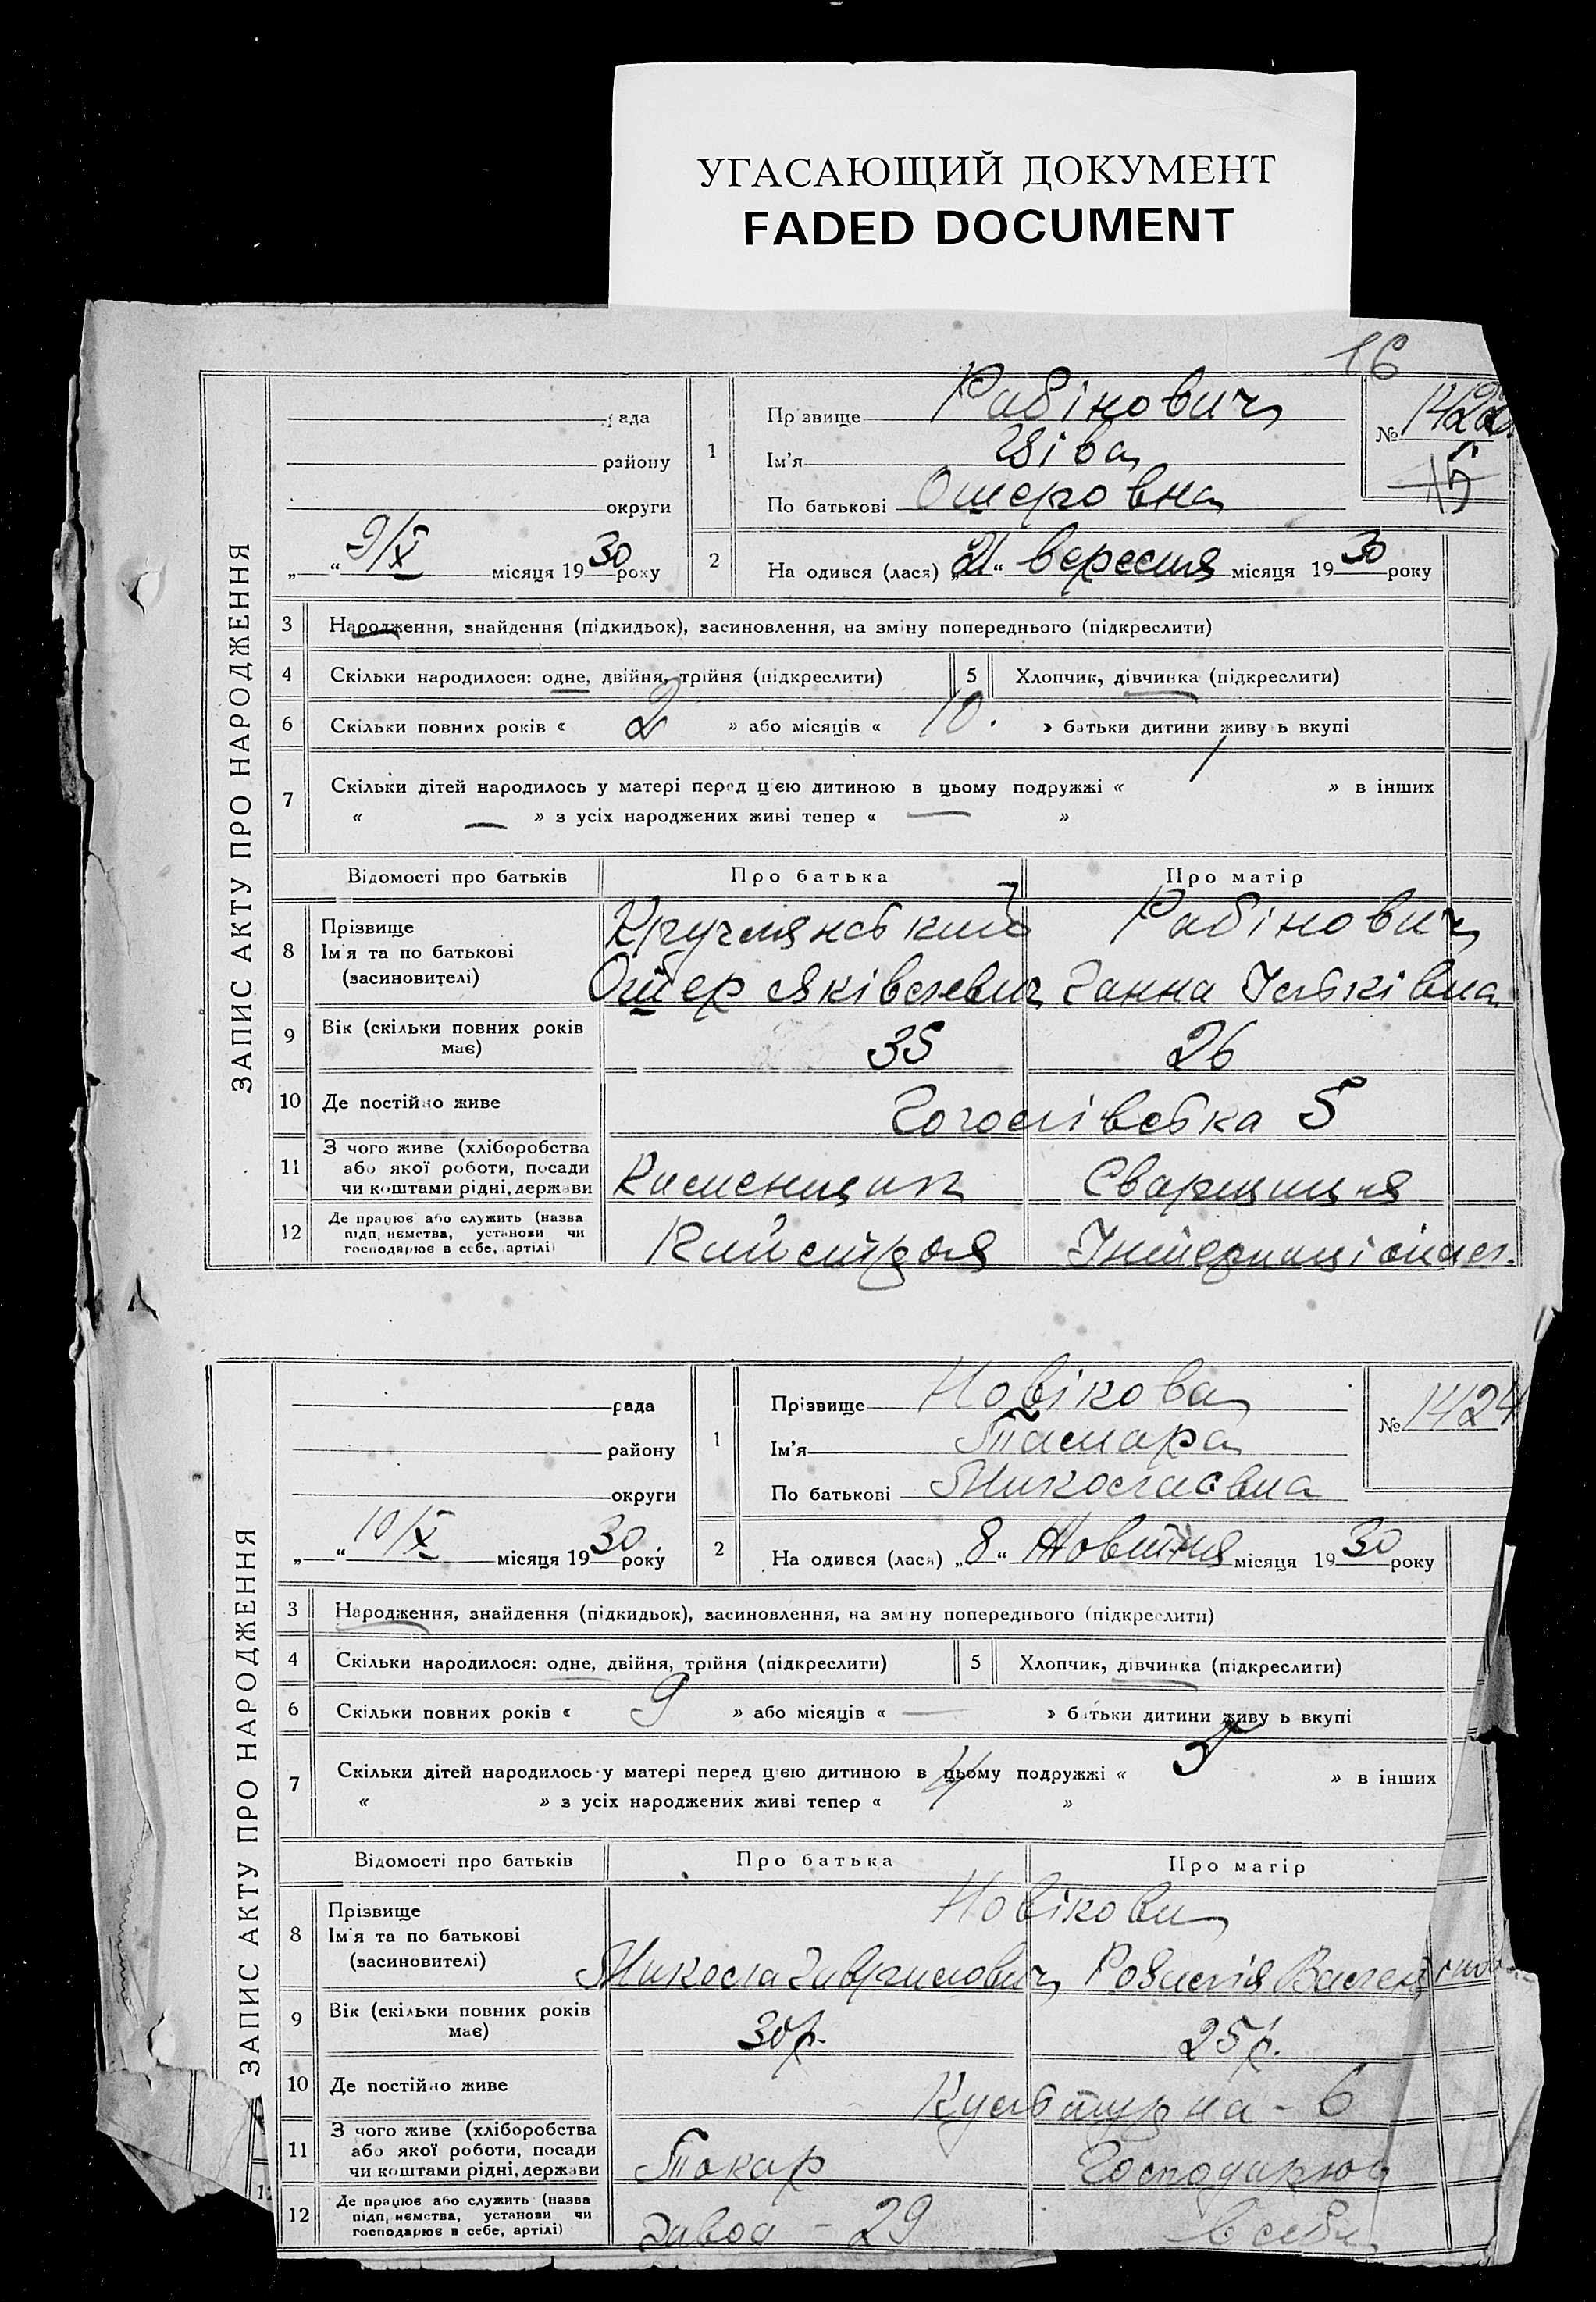 УГАСАЮЩИЙ ДОКУМЕНТ
FADED DOCUMENT
16
ЗАПИС АКТУ ПРО НАРОДЖЕННЯ
рада
району
округи
„ “ 9/X місяця 1930 року
1
Прізвище Рабінович
Ім'я
По батькові Ошеровна
№
2
На одився (лася) „21“ вересня місяця 1930 року
3 Народження, знайдення (підкидьок), засиновлення, на зміну попереднього (підкреслити)
4 Скільки народилося: одне, двійня, трійня (підкреслити) 5 Хлопчик, дівчинка (підкреслити)
6 Скільки повних років « 2 » або місяців « 10. » батьки дитини живу ь вкупі
7 Скільки дітей народилось у матері перед цією дитиною в цьому подружжі « 1 » в інших
« — » з усіх народжених живі тепер « — »
Відомості про батьків Про батька Про матір
8 Прізвище
Ім'я та по батькові
(засиновителі)
Рабінович
Ошер Яківлевич Ганна
9 Вік (скільки повних років має) 35 26
10 Де постійно живе Гоголівська 5
11 З чого живе (хліборобства
або якої роботи, посади
чи коштами рідні, держави
Сварщиця
12 Де працює або служить (назва
підп, иємства, установи чи
господарює в себе, артілі)
Інтернаціонал.
ЗАПИС АКТУ ПРО НАРОДЖЕННЯ
рада
району
округи
„ “ 10/X місяця 1930 року
1
Прізвище Новікова
Ім'я Тамара
По батькові Миколаєвна
№ 1424
2
На одився (лася) „8“ Жовтня місяця 1930 року
3 Народження, знайдення (підкидьок), засиновлення, на зм ну попереднього (підкреслити)
4 Скільки народилося: одне, двійня, трійня (підкреслити) 5 Хлопчик, дівчинка (підкреслити)
6 Скільки повних років « 9 » або місяців « — » батьки дитини живу ь вкупі
7 Скільки дітей народилось у матері перед цією дитиною в цьому подружжі « 5 » в інших
« » з усіх народжених живі тепер « 4 »
Відомості про батьків Про батька Про матір
8 Прізвище
Ім'я та по батькові
(засиновителі)
Новікови
Микола Гаврилович
9 Вік (скільки повних років має) 30 р. 25 р.
10 Де постійно живе Культурна - 6
11 З чого живе (хліборобства
або якої роботи, посади
чи коштами рідні, держави
Токар Господарює
12 Де працює або служить (назва
підп, иємства, установи чи
господарює в себе, артілі)
Завод - 29 в себе